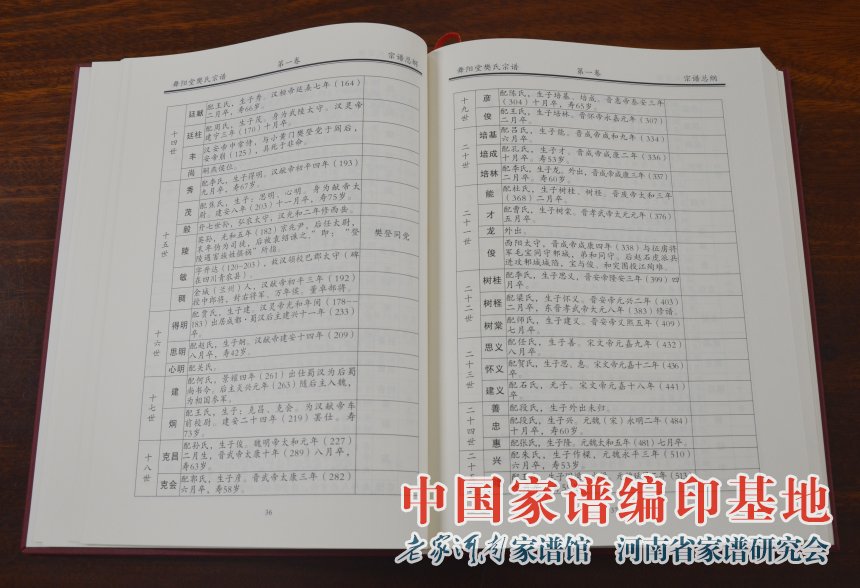 舞阳堂樊氏宗谱 第一卷 宗谱总纲
十四世
廷献 配王氏，生子秀。汉桓帝延熹七年（164）
二月卒，寿66岁。
廷柱 配周氏，生子茂。身为武陵太守。汉灵帝
建宁三年（170）十月卒。
丰 汉安帝中常侍，与小黄门樊登党于阎后，
安帝崩（125），具死于非命。
尚 嗣燕侯位。
十五世
秀 配李氏，生子得明。汉献帝初平四年（193）
九月卒，寿67岁。
茂 配张氏，生子，思明、心明。身为献帝太
尉。建安八年（203）十一月卒，寿75岁。
毅 丹七世孙，弘农太守，汉光和二年修西岳。
陵 英孙，光和五年（182）宗北尹，后任太尉，
末年伪为司徒，后被袁绍诛之。"即："登
陵遇害族姓槁柄"所指。
樊登同党
敏 字升达（120-203），故汉领校巴郡太守（碑
在四川青衣县）。
稠 金城（兰州）人，汉献帝初平三年（192）
授中郎将，封右将军、万年候，董卓部将。
十六世
得明 配贾氏，生子建，汉灵帝光和年间（178—
183）出居成都·蜀汉后主建兴十一年（233）
卒。
思明 配赵氏，生子炯。汉献帝建安十四年（209）
八月卒，寿42岁。
心明 配关氏。
十七世
建 配何氏，景耀四年（261）出任蜀汉为后蜀
尚书令，后主炎兴元年（263）随后主入魏，
为相国参军。
炯 配王氏，生子：克昌、克会。为汉献帝东
安前校尉。建安二十四年（219）罢仕。寿
73岁。
十八世
克昌 配孙氏，生子俊。魏明帝太和元年（227）
二月生，晋武帝太康十年（289）八月卒，
寿63岁。
克会 配郭氏，生子彦。晋武帝太康三年（282）
六月卒，寿58岁。
36
舞阳堂樊氏宗谱 第一卷 宗谱总纲
十九世
彦 配陈氏，生子培基、培成。晋惠帝泰安三年
（304）十月卒，寿65岁。
俊 配王氏，生子培林。晋怀帝永嘉元年（307）
二月卒。
二十世
培基 配吕氏，生子能。晋成帝咸和九年（334）
六月卒
培成 配孔氏，生子才。晋成帝咸康二年（336）
十月卒，寿53岁。
培林 配李氏，生子龙，外出，晋成帝咸康三年（337）
二月卒，寿60岁。
二十一世
能 配杜氏，生子树桂、树柽。晋废帝太和三年
（368）二月卒。
才 配曹氏，生子树棠。晋孝武帝太元元年（376）
五月卒。
龙 外出。
俊 西阳太守，晋成帝咸康四年（338）与征虏将
军毛宝同守郝城，弟和同守。后赵石虎派兵
进攻郝城城陷，宝与俊、和突围投江殉难。
二十二世
树桂 配李氏，生子思义，晋安帝隆安三年（399）四
月卒。
树柽 配梁氏，生子怀义。晋安帝元兴二年（403）
二月卒，东晋孝武帝大元八年（383）修谱。
树棠 配师氏，生子建义。晋安帝义熙五年（409）
七月卒。
二十三世
思义 配任氏，生子善。宋文帝元嘉九年（432）
八月卒。
怀义 配贺氏，生子忠、惠。宋文帝元嘉十二年（436）
六月卒。
建义 配石氏，无子。宋文帝元嘉十八年（441）
卒。
二十四世
善 配段氏，生子外出未归。
忠 配段氏，生子兴。元魏（宋）永明二年（484）
十月卒，寿60岁。
惠 配张氏，生子隆。元魏太和五年（481）七月卒。
兴 配朱氏，生子作樑，元魏永平三年（510）
六月卒，寿53岁。
中国家谱编印基地
老家河南家谱馆 河南省家谱研究会